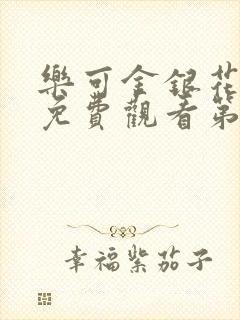 樂可金銀花
免費觀看第
幸福紫茄子